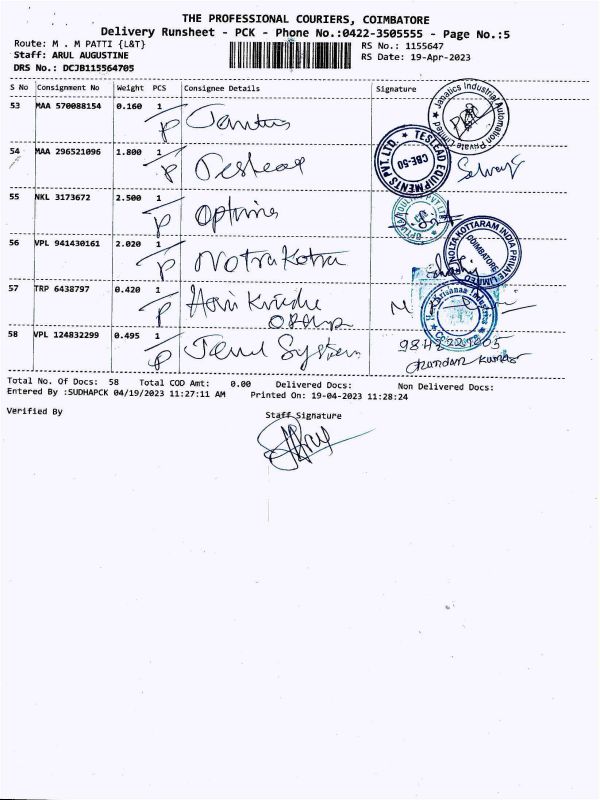 THE PROFESSIONAL COURIERS, COIMBATORE
Delivery Runsheet - PCK - Phone No.:0422-3505555 - Page No.:5
Route: M . M PATTI {L&T} RS No.: 1155647
Staff: ARUL AUGUSTINE RS Date: 19-Apr-2023
DRS No.: DCJB115564705
S No Consignment No Weight PCS Consignee Details Signature
53 MAA 570088154 0.160 1
P
Janatics Industrial Automation Private Limited
54 MAA 296521096 1.800 1
P Testead
TESTEAD EQUIPMENTS PVT. LTD. CBE-50 Selvaraj
55 NKL 3173672 2.500 1
P
56 VPL 941430161 2.020 1
P
NOLTA KOTTARAM INDIA PRIVATE LIMITED COIMBATORE
57 TRP 6438797 0.420 1
P
58 VPL 124832299 0.495 1
P System
Chandan Kumar
Total No. Of Docs: 58 Total COD Amt: 0.00 Delivered Docs: Non Delivered Docs:
Entered By :SUDHAPCK 04/19/2023 11:27:11 AM Printed On: 19-04-2023 11:28:24
Verified By Staff Signature